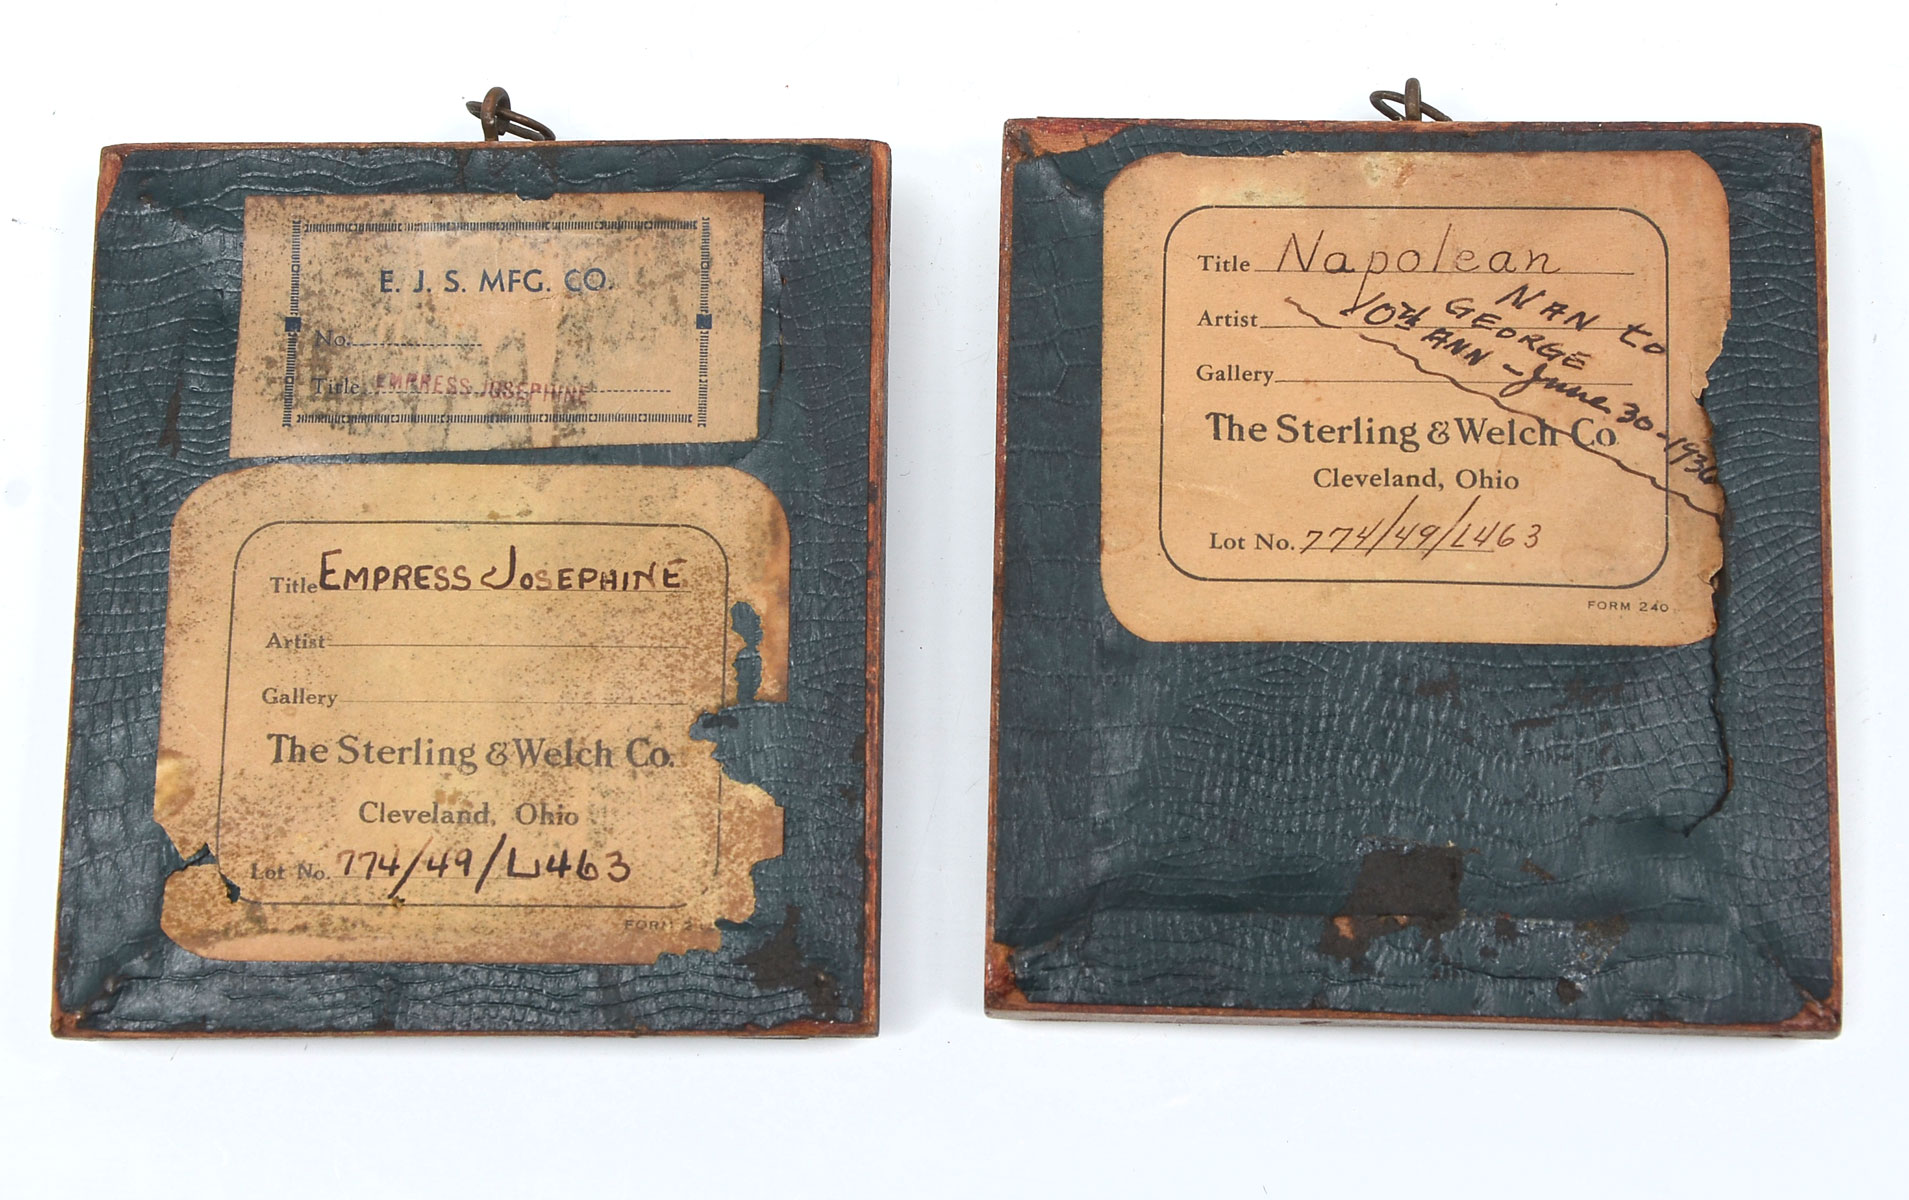 E. J. S. MFG. CO.
No.
Title EMPRESS JOSEPHINE
Title EMPRESS JOSEPHINE
Artist
Gallery
The Sterling & Welch Co.
Cleveland, Ohio
Lot No. 774/49/L463
FORM 2
Title Napolean
Artist
Gallery
NAN to
GEORGE
10th ANN - June 30 - 1936
The Sterling & Welch Co
Cleveland, Ohio
Lot No. 774/49/L463
FORM 240